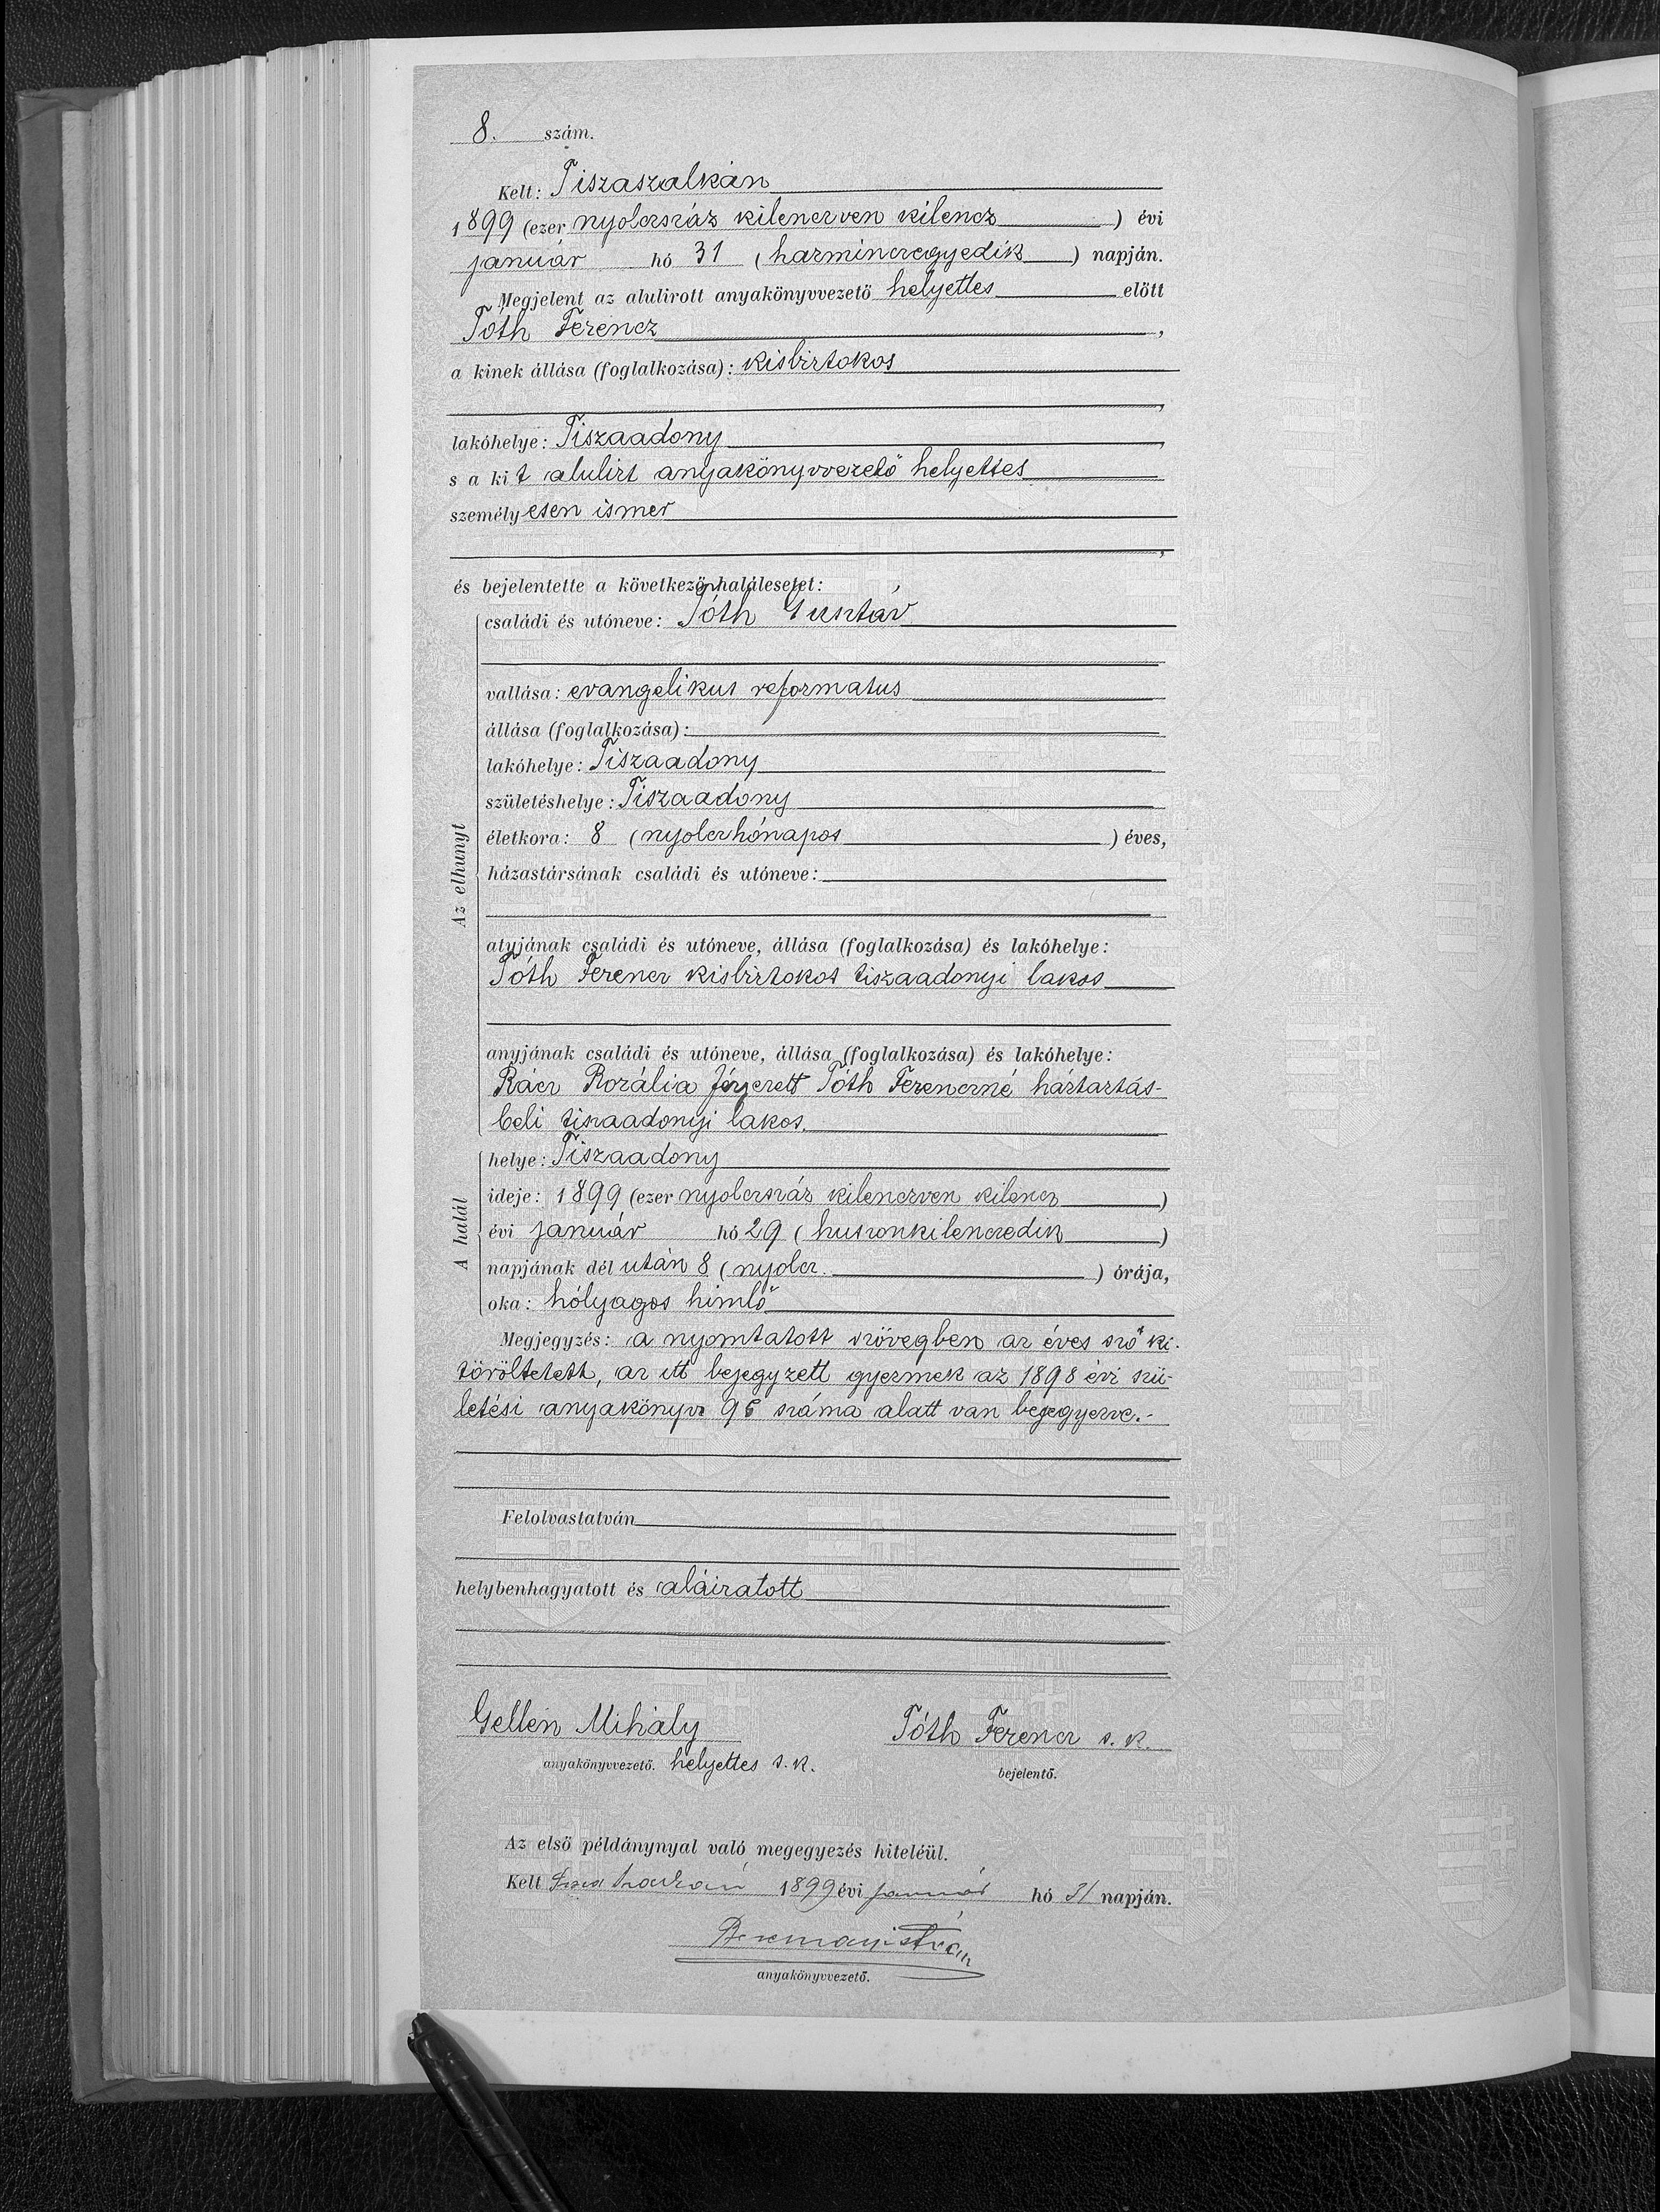 8. szám.
Kelt: Tiszaszalkán
1899 (ezer nyolczszáz kilenczven kilencz ) évi
január hó 31 (harminczegyedik ) napján.
Megjelent az alulirott anyakönyvvezető helyettes előtt
Tóth Ferencz ,
a kinek állása (foglalkozása): kisbirtokos
,
lakóhelye: Tiszaadony ,
s a kit alulirt anyakönyvvezető helyettes
személyesen ismer
,
és bejelentette a következő halálesetet:
Az elhunyt
családi és utóneve: Tóth Gusztáv
vallása: evangelikus reformatus
állása (foglalkozása):
lakóhelye: Tiszaadony
születéshelye: Tiszaadony
életkora: 8 (nyolczhónapos ) éves,
házastársának családi és utóneve:
atyjának családi és utóneve, állása (foglalkozása) és lakóhelye:
Tóth Ferencz kisbirtokos tiszaadonyi lakos
anyjának családi és utóneve, állása (foglalkozása) és lakóhelye:
Rácz Rozália férjezett Tóth Ferenczné háztartás-
beli tiszaadonyi lakos.
A halál
helye: Tiszaadony
ideje: 1899 (ezer nyolczszáz kilenczven kilencz )
évi január hó 29 (huszonkilenczedik )
napjának dél után 8 (nyolcz. ) órája,
oka: hólyagos himlő
Megjegyzés: a nyomtatott szövegben az éves szó ki-
töröltetett, az itt bejegyzett gyermek az 1898 évi szü-
letési anyakönyv 95 száma alatt van bejegyezve.-
Felolvastatván
helybenhagyatott és aláiratott
Gellén Mihály Tóth Ferencz s. k.
anyakönyvvezető. helyettes s. k. bejelentő.
Az első példánynyal való megegyezés hiteléül.
Kelt 1899 évi január hó 31 napján.
anyakönyvvezető.